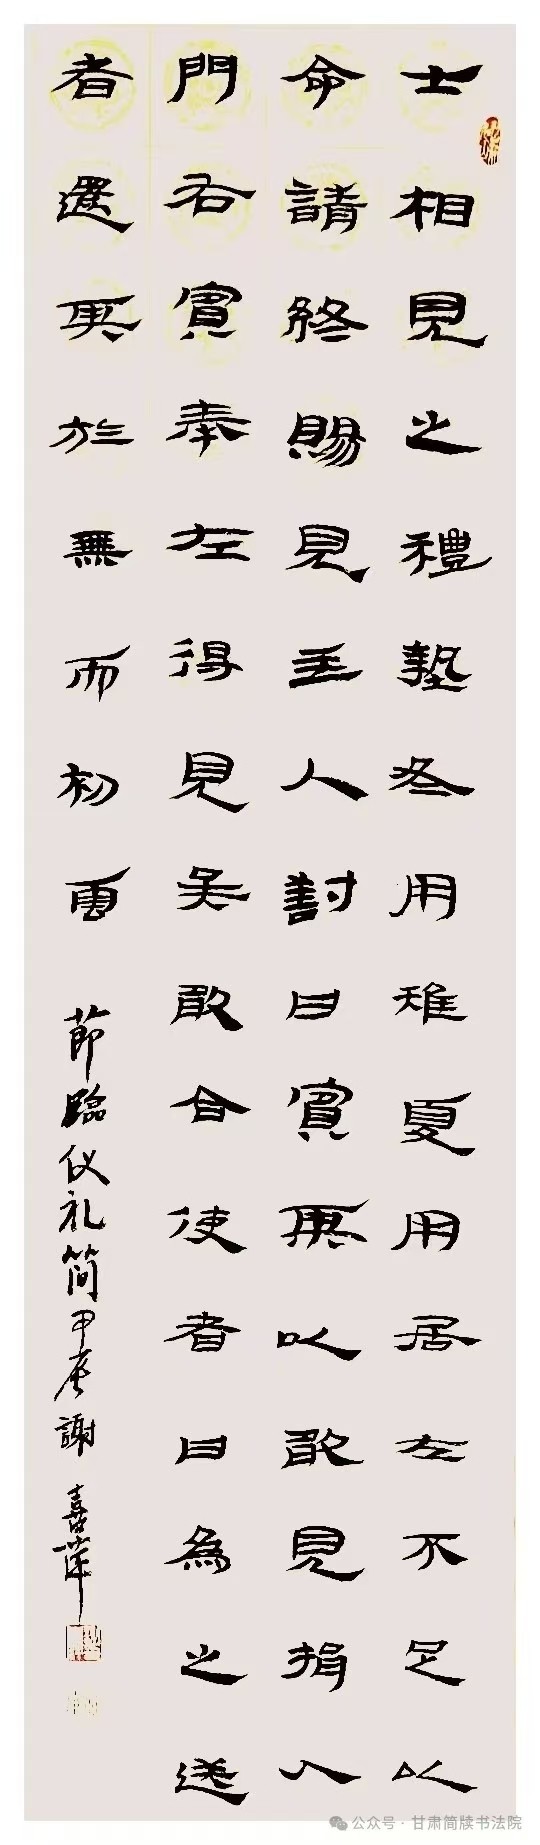 士相見之禮摯冬用雉夏用居左不足以
命請終賜見主人對曰賓再以敢見揖入
門右賓奉左得見矣敢合使者曰為之送
者還再於無而初面
節臨仪礼简甲辰謝喜萍
公众号·甘肃简牍书法院